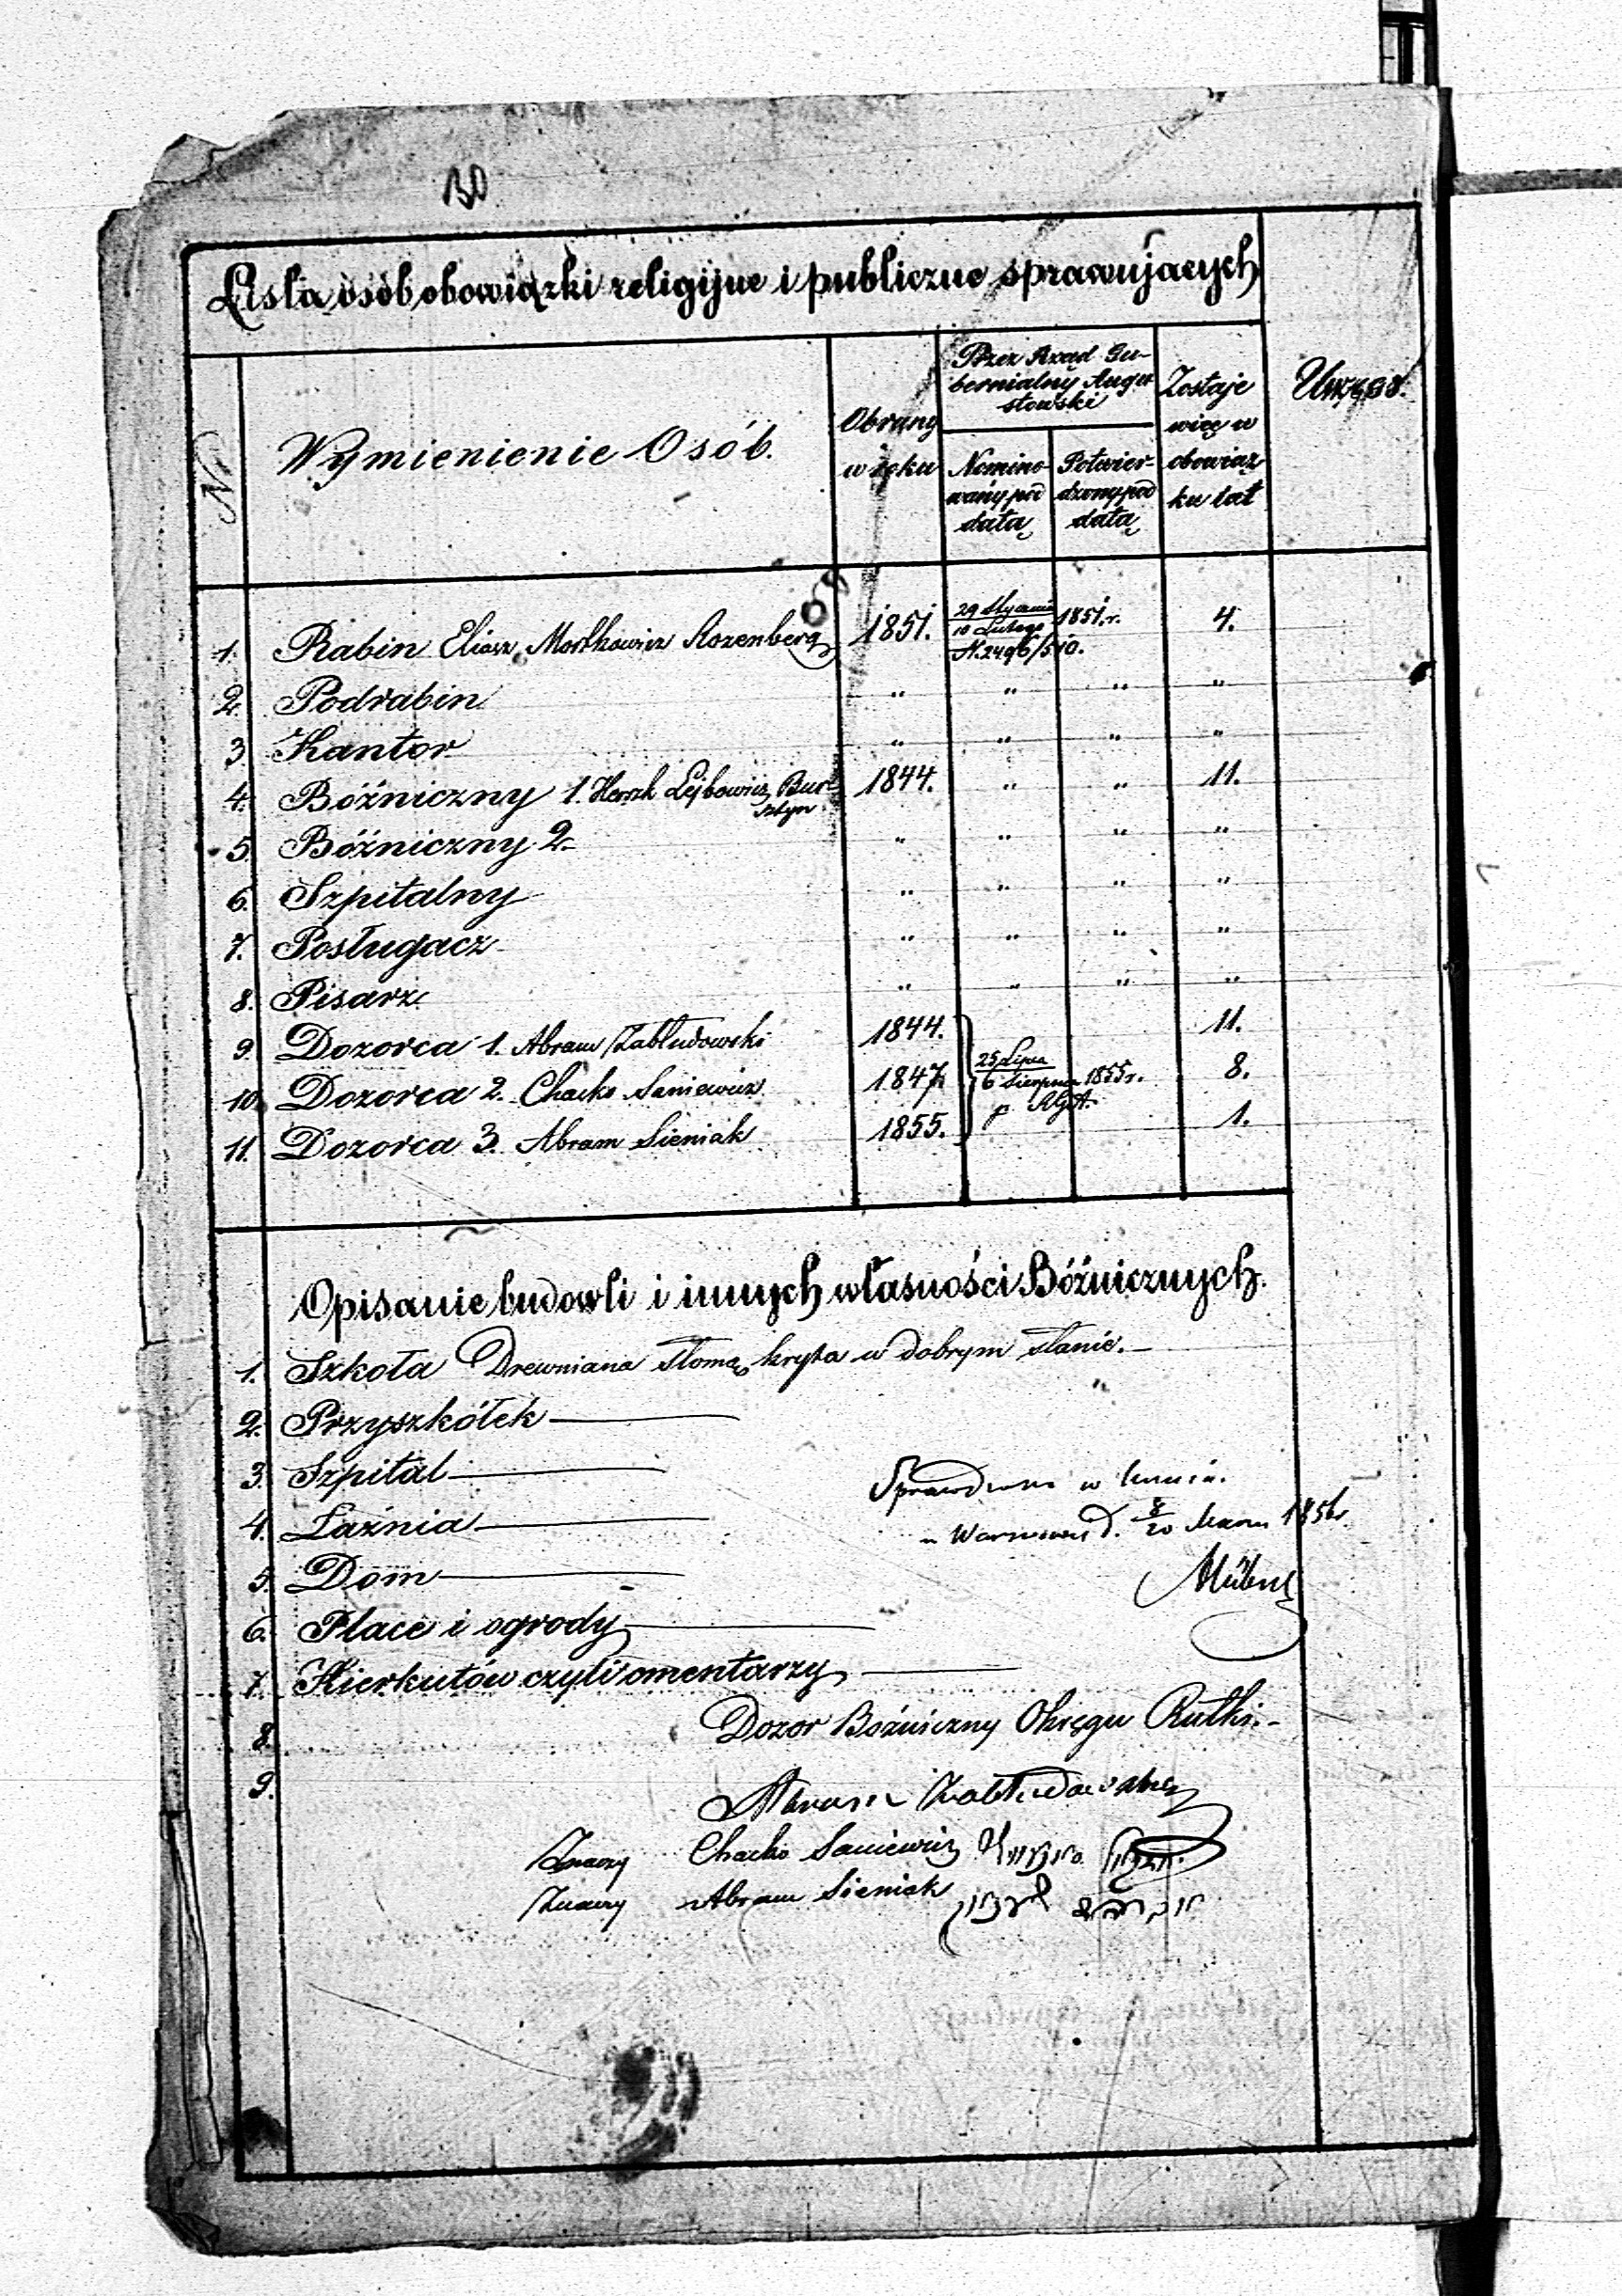 Lista osób obowiązki religijne i publiczne sprawujących
Nr Wymienienie Osób. Obrany w roku Przez Rząd Gubernialny Augustowski Zostaje więc w obowiązku lat Uwagi.
Nominowány pod datą Potwierdzony pod datą
1. Rabin Eliasz Mortkowicz Rozenberg 1851. 29 Stycznia / 10 Lutego 1851.r. N. 2496/510. 4.
2. Podrabin " " " "
3. Kantor " " " "
4. Bóźniczny 1. Herszk Lejbowicz Bursztyn 1844. " " 11.
5. Bóźniczny 2. " " " "
6. Szpitalny " " " "
7. Posługacz " " " "
8. Pisarz " " " "
9. Dozorca 1. Abram Zabłudowski 1844. 11.
10. Dozorca 2. Chacko Saniewicz 1847. 25 Lipca / 6 Sierpnia 1855 r. 8.
11. Dozorca 3. Abram Sieniak 1855. 1.
Opisanie budowli i innych własności Bóźnicznych.
1. Szkoła Drewniana słomą kryta w dobrym stanie.
2. Przyszkółek
3. Szpital
4. Łaźnia
5. Dom
6. Place i ogrody
7. Kierkutów czyli cmentarzy
8.
9.
Sprawdzono w
w Warszawie d. 8/20 Marca 1856 r.
Dozor Bóźniczny Okręgu Rutki.
Abram Zabłudowski
Znaczy Chacko Saniewicz
Znaczy Abram Sieniak